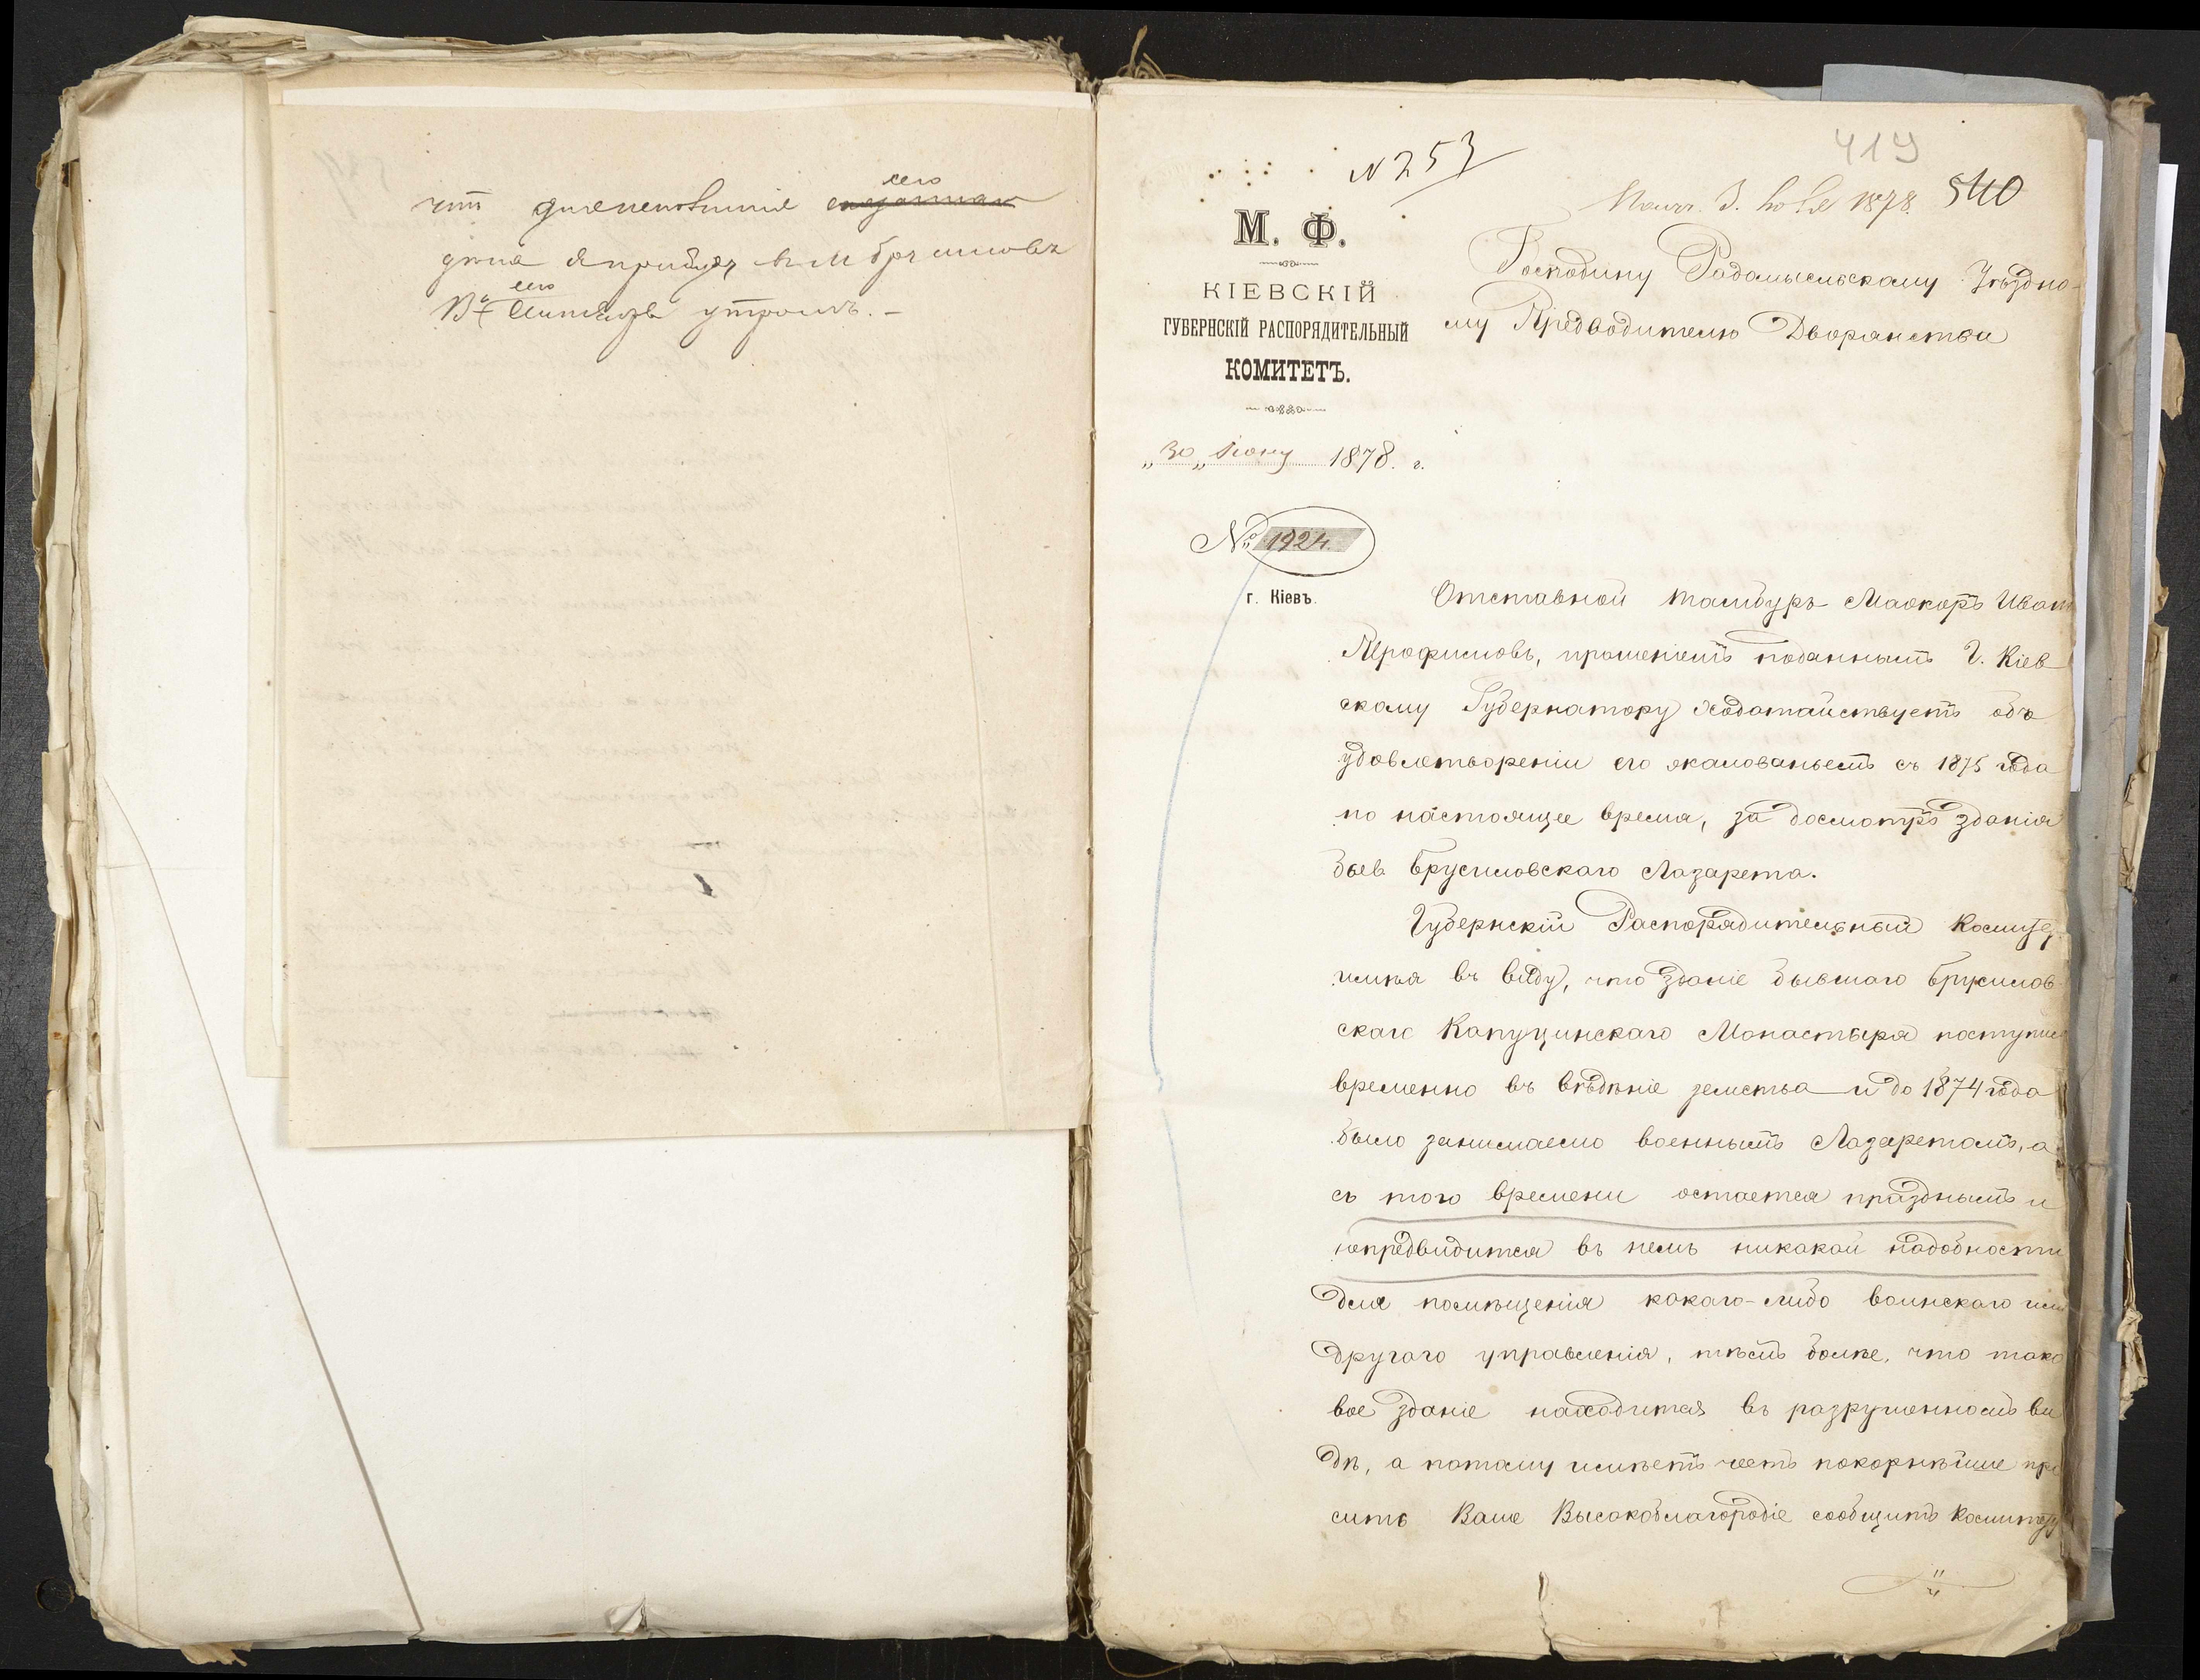 сего
утромъ. –
419
N 253
540
1878.
М. Ф.
КІЕВСКІЙ
ГУБЕРНСКІЙ РАСПОРЯДИТЕЛЬНЫЙ
КОМИТЕТЪ.
„30„ Іюня 1878. г.
№ 1924.
г. Кіевъ.
Господину Радомысльскому Уѣздно-
му Предводителю Дворянства
Отставной Тамбуръ Маіоръ Иванъ
прошеніемъ поданнымъ Г. Кіев
скому Губернатору ходатайствуетъ объ
удовлетвореніи его жалованьемъ съ 1875 года
по настоящее время, за досмотръ зданія
быв Брусиловскаго Лазарета.
Губернскій Распорядительный Комитет
имѣя въ виду, что зданіе бывшаго Брусилов
скаго Капуцинскаго Монастыря поступило
временно въ вѣдѣніе земства и до 1874 года
было занимаемо военнымъ Лазаретомъ, а
съ того времени остается празднымъ и
непредвидится въ немъ никакой надобности
для помѣщенія какаго-либо воинскаго или
другаго управленія, тѣмъ болѣе, что тако
вое зданіе находится въ разрушенномъ ви
дѣ, а потому имѣетъ честь покорнѣйше про
сить Ваше Высокоблагородіе сообщить Комитету